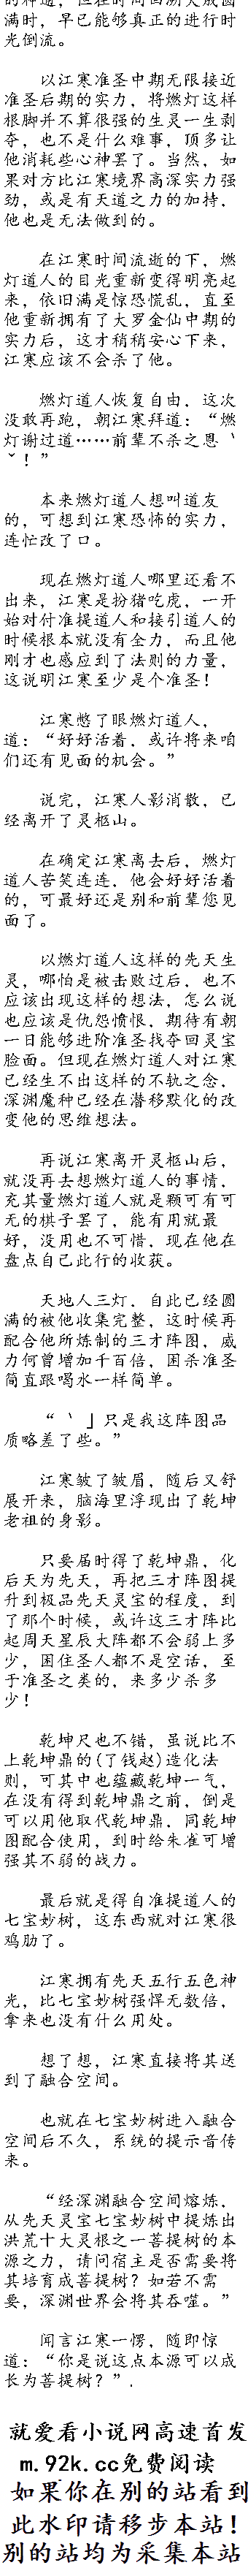 的神通，但在时间回溯大成圆
满时，早已能够真正的进行时
光倒流。
以江寒准圣中期无限接近
准圣后期的实力，将燃灯这样
根脚并不算很强的生灵一生剥
夺，也不是什么难事，顶多让
他消耗些心神罢了。当然，如
果对方比江寒境界高深实力强
劲，或是有天道之力的加持，
他也是无法做到的。
在江寒时间流逝的下，燃
灯道人的目光重新变得明亮起
来，依旧满是惊恐慌乱，直至
他重新拥有了大罗金仙中期的
实力后，这才稍稍安心下来，
江寒应该不会杀了他。
燃灯道人恢复自由，这次
没敢再跑，朝江寒拜道：“燃
灯谢过道……前辈不杀之恩︶
ˇ！”
本来燃灯道人想叫道友
的，可想到江寒恐怖的实力，
连忙改了口。
现在燃灯道人哪里还看不
出来，江寒是扮猪吃虎，一开
始对付准提道人和接引道人的
时候根本就没有全力，而且他
刚才也感应到了法则的力量，
这说明江寒至少是个准圣！
江寒憋了眼燃灯道人，
道：“好好活着，或许将来咱
们还有见面的机会。”
说完，江寒人影消散，已
经离开了灵柩山。
在确定江寒离去后，燃灯
道人苦笑连连，他会好好活着
的，可最好还是别和前辈您见
面了。
以燃灯道人这样的先天生
灵，哪怕是被击败过后，也不
应该出现这样的想法，怎么说
也应该是仇怨愤恨，期待有朝
一日能够进阶准圣找夺回灵宝
脸面。但现在燃灯道人对江寒
已经生不出这样的不轨之念，
深渊魔种已经在潜移默化的改
变他的思维想法。
再说江寒离开灵柩山后，
就没再去想燃灯道人的事情，
充其量燃灯道人就是颗可有可
无的棋子罢了，能有用就最
好，没用也不可惜，现在他在
盘点自己此行的收获。
天地人三灯，自此已经圆
满的被他收集完整，这时候再
配合他所炼制的三才阵图，威
力何曾增加千百倍，困杀准圣
简直跟喝水一样简单。
“︶」只是我这阵图品
质略差了些。”
江寒皱了皱眉，随后又舒
展开来，脑海里浮现出了乾坤
老祖的身影。
只要届时得了乾坤鼎，化
后天为先天，再把三才阵图提
升到极品先天灵宝的程度，到
了那个时候，或许这三才阵比
起周天星辰大阵都不会弱上多
少，困住圣人都不是空话，至
于准圣之类的，来多少杀多
少！
乾坤尺也不错，虽说比不
上乾坤鼎的(了钱赵)造化法
则，可其中也蕴藏乾坤一气，
在没有得到乾坤鼎之前，倒是
可以用他取代乾坤鼎，同乾坤
图配合使用，到时给朱雀可增
强其不弱的战力。
最后就是得自准提道人的
七宝妙树，这东西就对江寒很
鸡肋了。
江寒拥有先天五行五色神
光，比七宝妙树强悍无数倍，
拿来也没有什么用处。
想了想，江寒直接将其送
到了融合空间。
也就在七宝妙树进入融合
空间后不久，系统的提示音传
来。
“经深渊融合空间熔炼，
从先天灵宝七宝妙树中提炼出
洪荒十大灵根之一菩提树的本
源之力，请问宿主是否需要将
其培育成菩提树？如若不需
要，深渊世界会将其吞噬。”
闻言江寒一愣，随即惊
道：“你是说这点本源可以成
长为菩提树？”.
就爱看小说网高速首发
m.92k.cc免费阅读
如果你在别的站看到
此水印请移步本站！
别的站均为采集本站